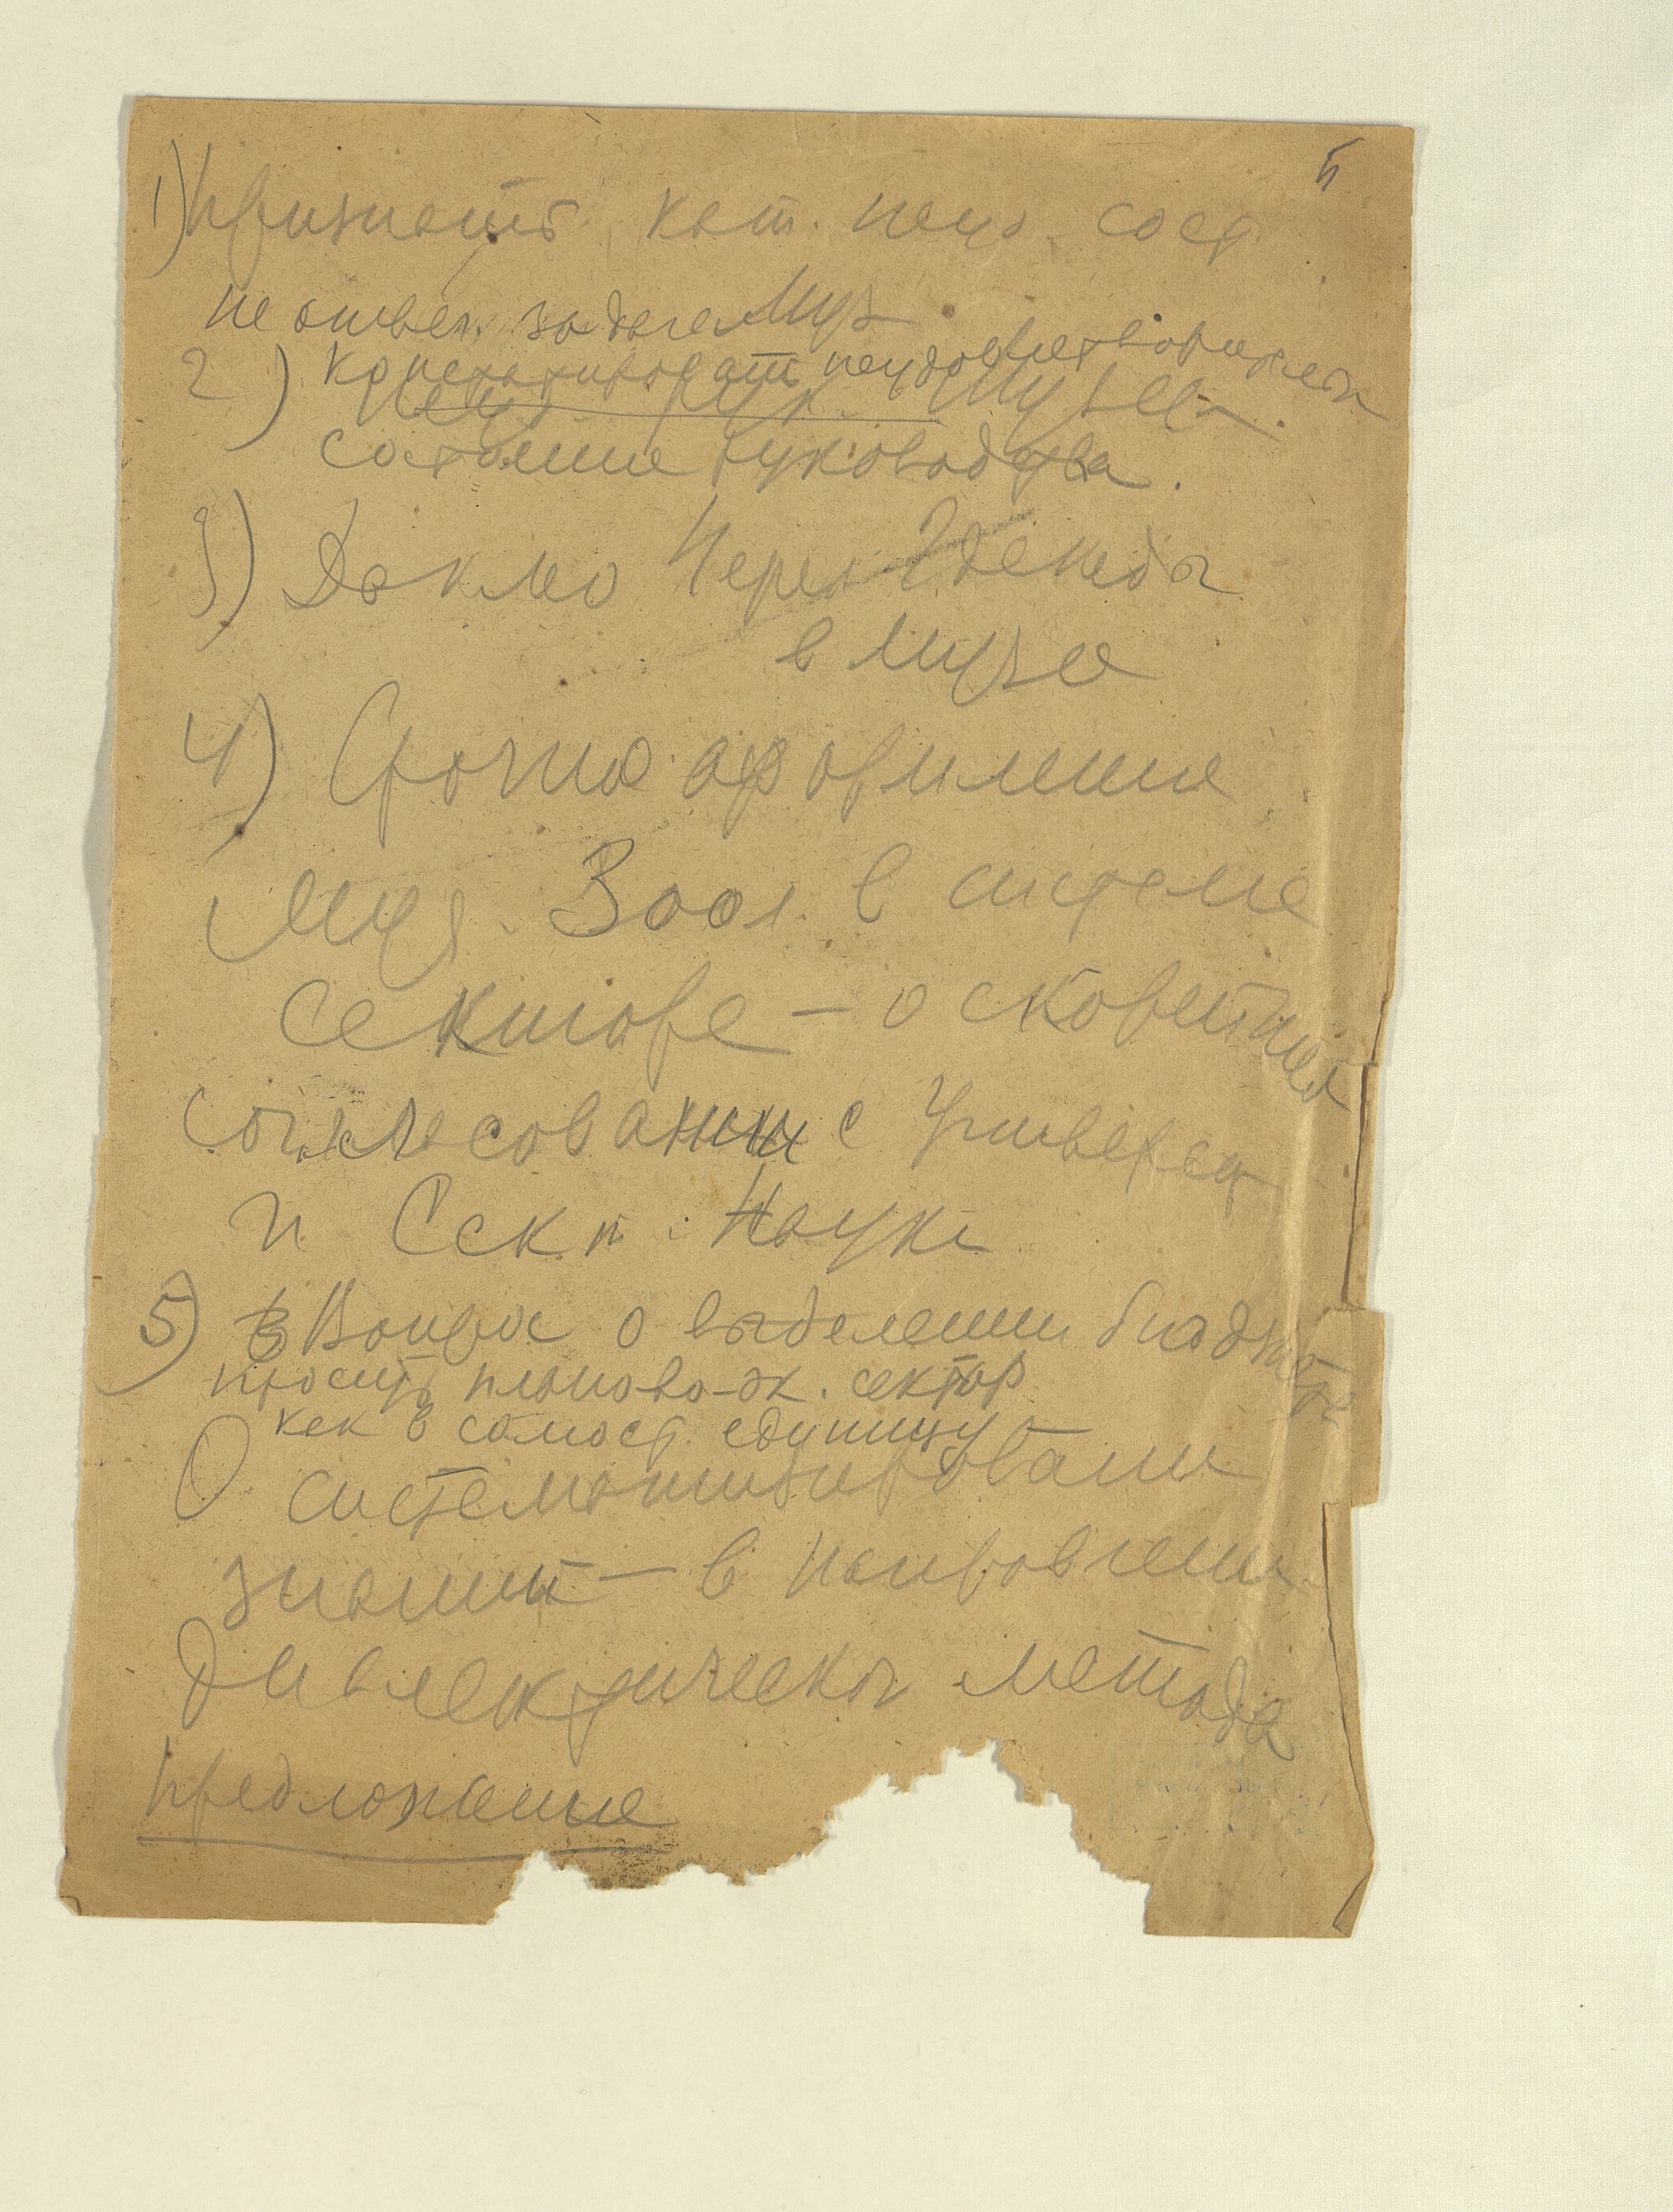 1) Признать кат. неуд. сост
не отвеч. задачам Муз
2) Констатировать неудовлетворительн
Неуд рук. Музеем.
состояние руководства.
3)
в Музее
4) Срочно оформление
Муз. Зоол. в системе
Секторе – о скорейшем
согласовании с Университ
и Сект. Науки
5) Вопрос о выделении бюджета
просить планово-эк. сектор
как в самост. единицу
О систематизировании
знаний – в направлении
диалектическог метода
Предложение